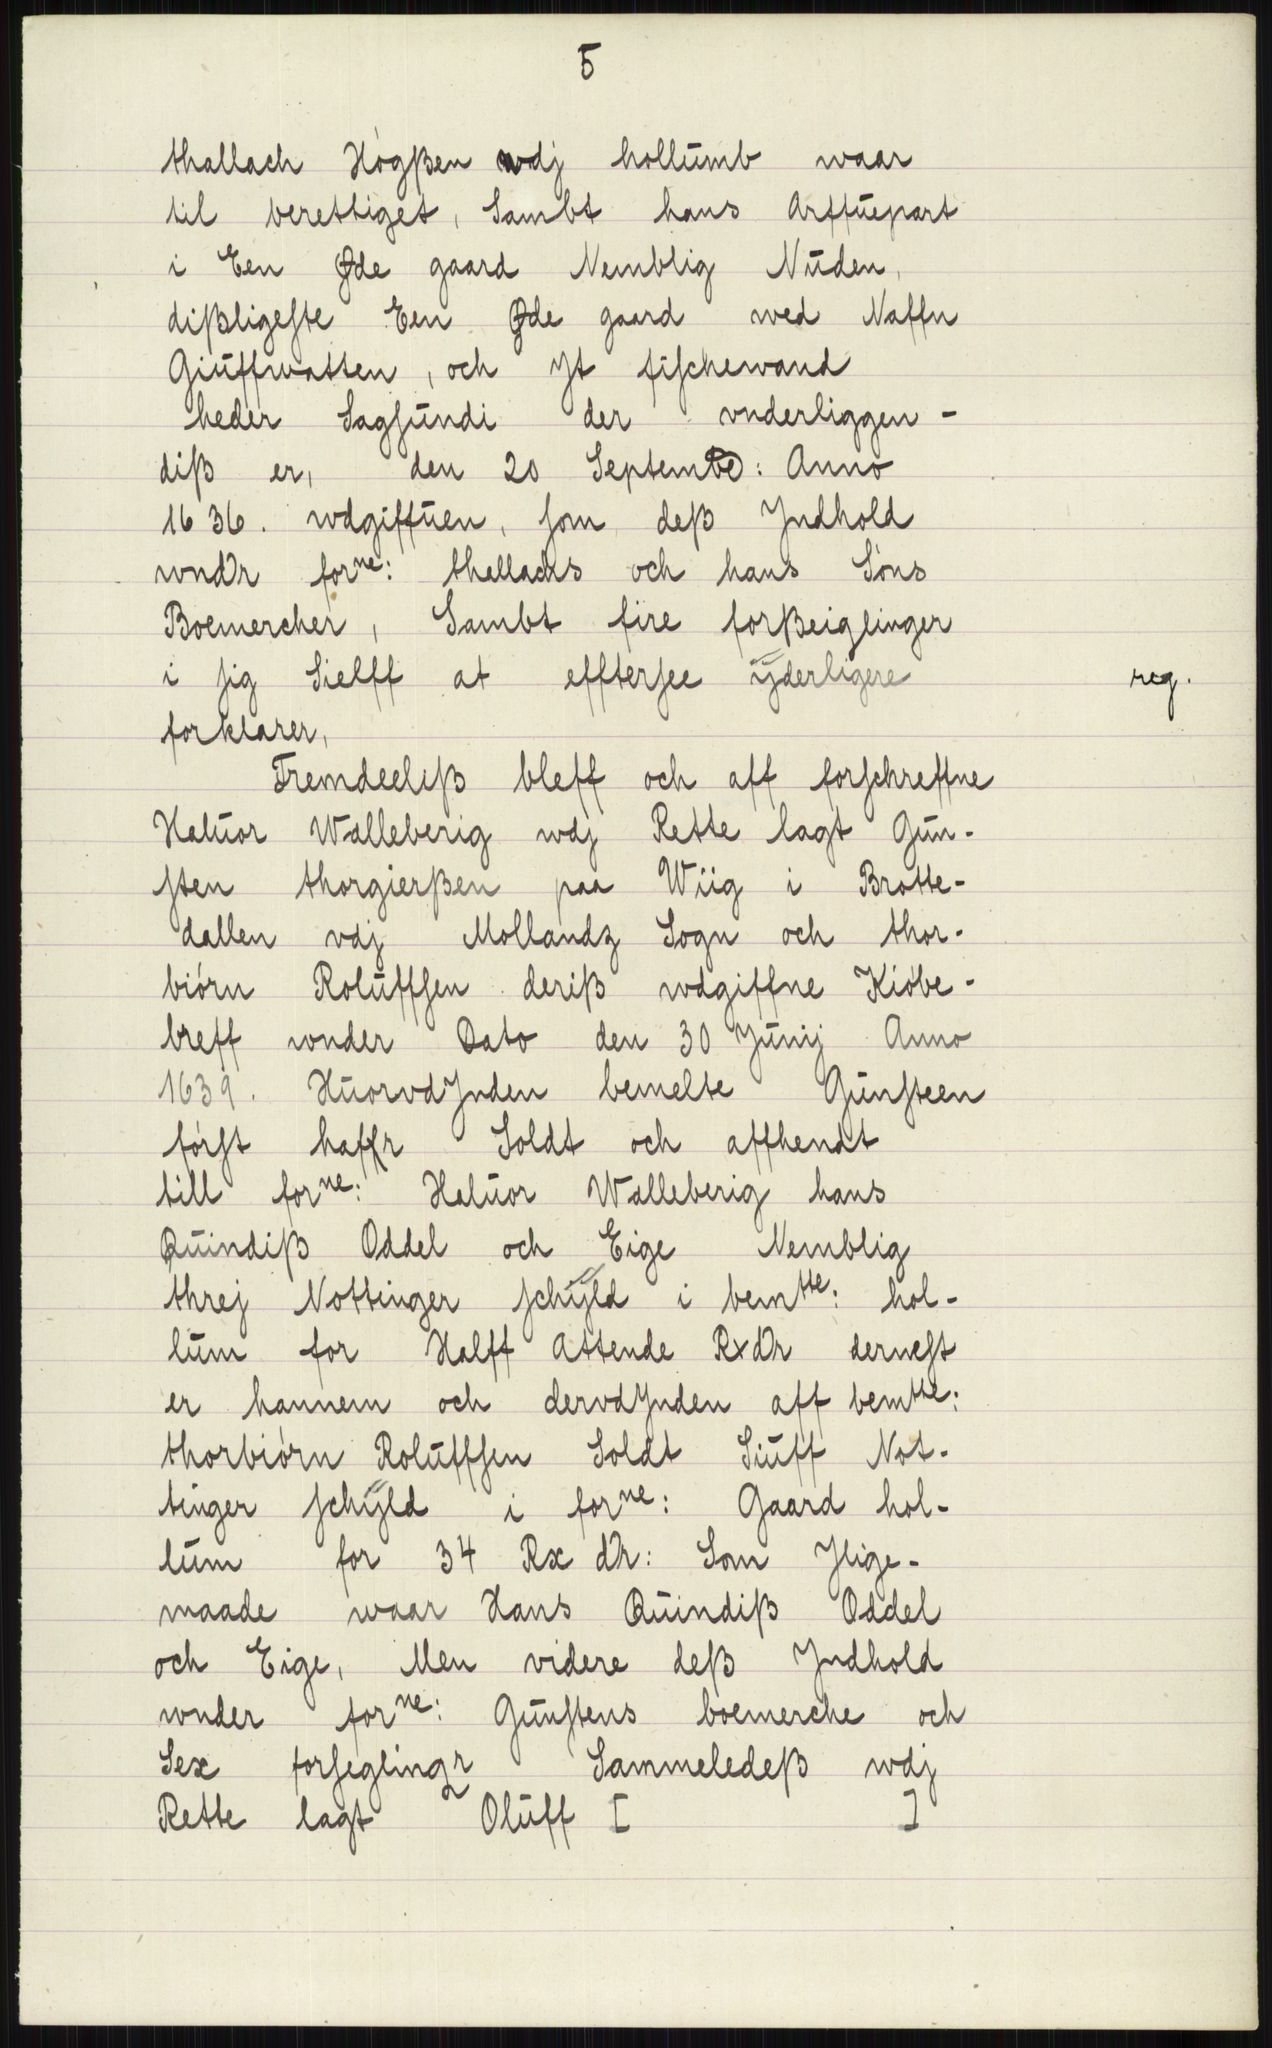 5
thallach Høgßen wdj hollumb waar
til berettiget, Sambt hans Arffuepart
i Een Øde gaard Nemblig Nuden,
dißligeste Een Øde gaard wed Naffn
Giuffwatten, och yt fischewand
heder Sagsundi der vnderliggen-
diß er, den 20 Septembe: Anno
1636. wdgiffuen, som deß Yndhold
wndr forne: thellachs och hans Søns
Boemercher, Sambt fire forßeiglinger
i sig Sielff at efftersee ÿderligere reg.
forklarer,
Fremdeeliß bleff och aff forschreffne
Haluor Walleberig wdj Rette lagt Gun-
sten thorgierßen paa Wiig i Brotte-
dallen vdj Mollandz Sogn och thor-
biørn Roluffsen deriß wdgiffne Kiøbe-
breff wnder Dato den 30 Junij Anno
1639. HuorvdJnden bemelte Gunsteen
først haffr Soldt och affhendt
till forne: Haluor Walleberig hans
Quindiß Oddel och Eige Nemblig
threj Nottinger schÿld i bemtte: hol-
lum for Halff Attende Rxdr dernest
er hannem och dervdJnden aff bemtte:
thorbiørn Roluffsen Soldt Siuff Not-
tinger schÿld i forne: Gaard hol-
lum for 34 Rx dr: Som Jlige-
maade waar Hans Quindiß Oddel
och Eige, Men videre deß Yndhold
wnder forne: Gunstens boemerche och
Sex forseglingr Sammeledeß wdj
Rette lagt Oluff [ ]